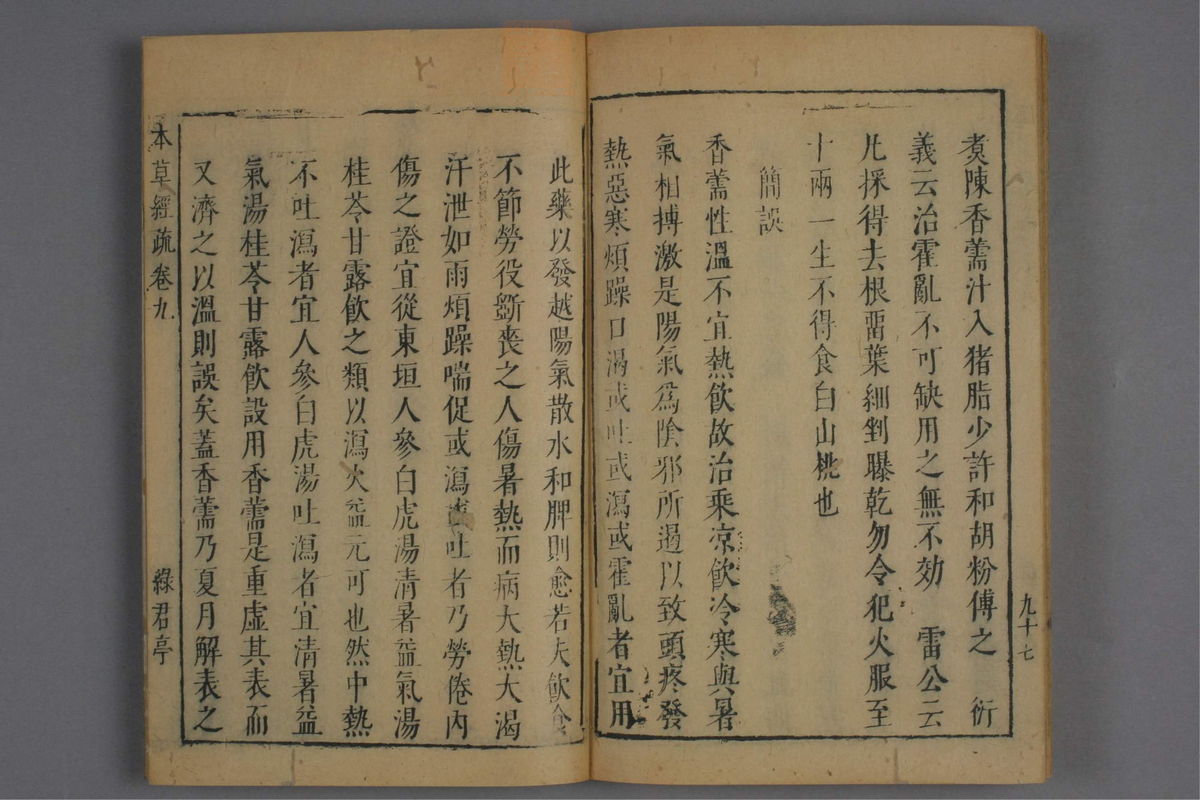 九十七
煑陳香薷汁入猪脂少許和胡粉傅之　衍
義云治霍亂不可缺用之無不効　雷公云
凡採得去根畱葉細剉曝乾勿令犯火服至
十兩一生不得食白山桃也
簡誤
香薷性溫不宜熱飲故治乘凉飲冷寒與暑
氣相搏激是陽氣爲陰邪所遏以致頭疼發
熱惡寒煩躁口渴或吐或瀉或霍亂者宜用
此藥以發越陽氣散水和脾則愈若夫飲食
不節勞役斵喪之人傷暑熱而病大熱大渴
汗泄如雨煩躁喘促或瀉或吐者乃勞倦內
傷之證宜從東垣人參白虎湯淸暑益氣湯
桂苓甘露飲之類以瀉火益元可也然中熱
不吐瀉者宜人參白虎湯吐瀉者宜淸暑益
氣湯桂苓甘露飲設用香薷是重虛其表而
又濟之以溫則誤矣蓋香薷乃夏月解表之
本草經疏卷九　綠君亭